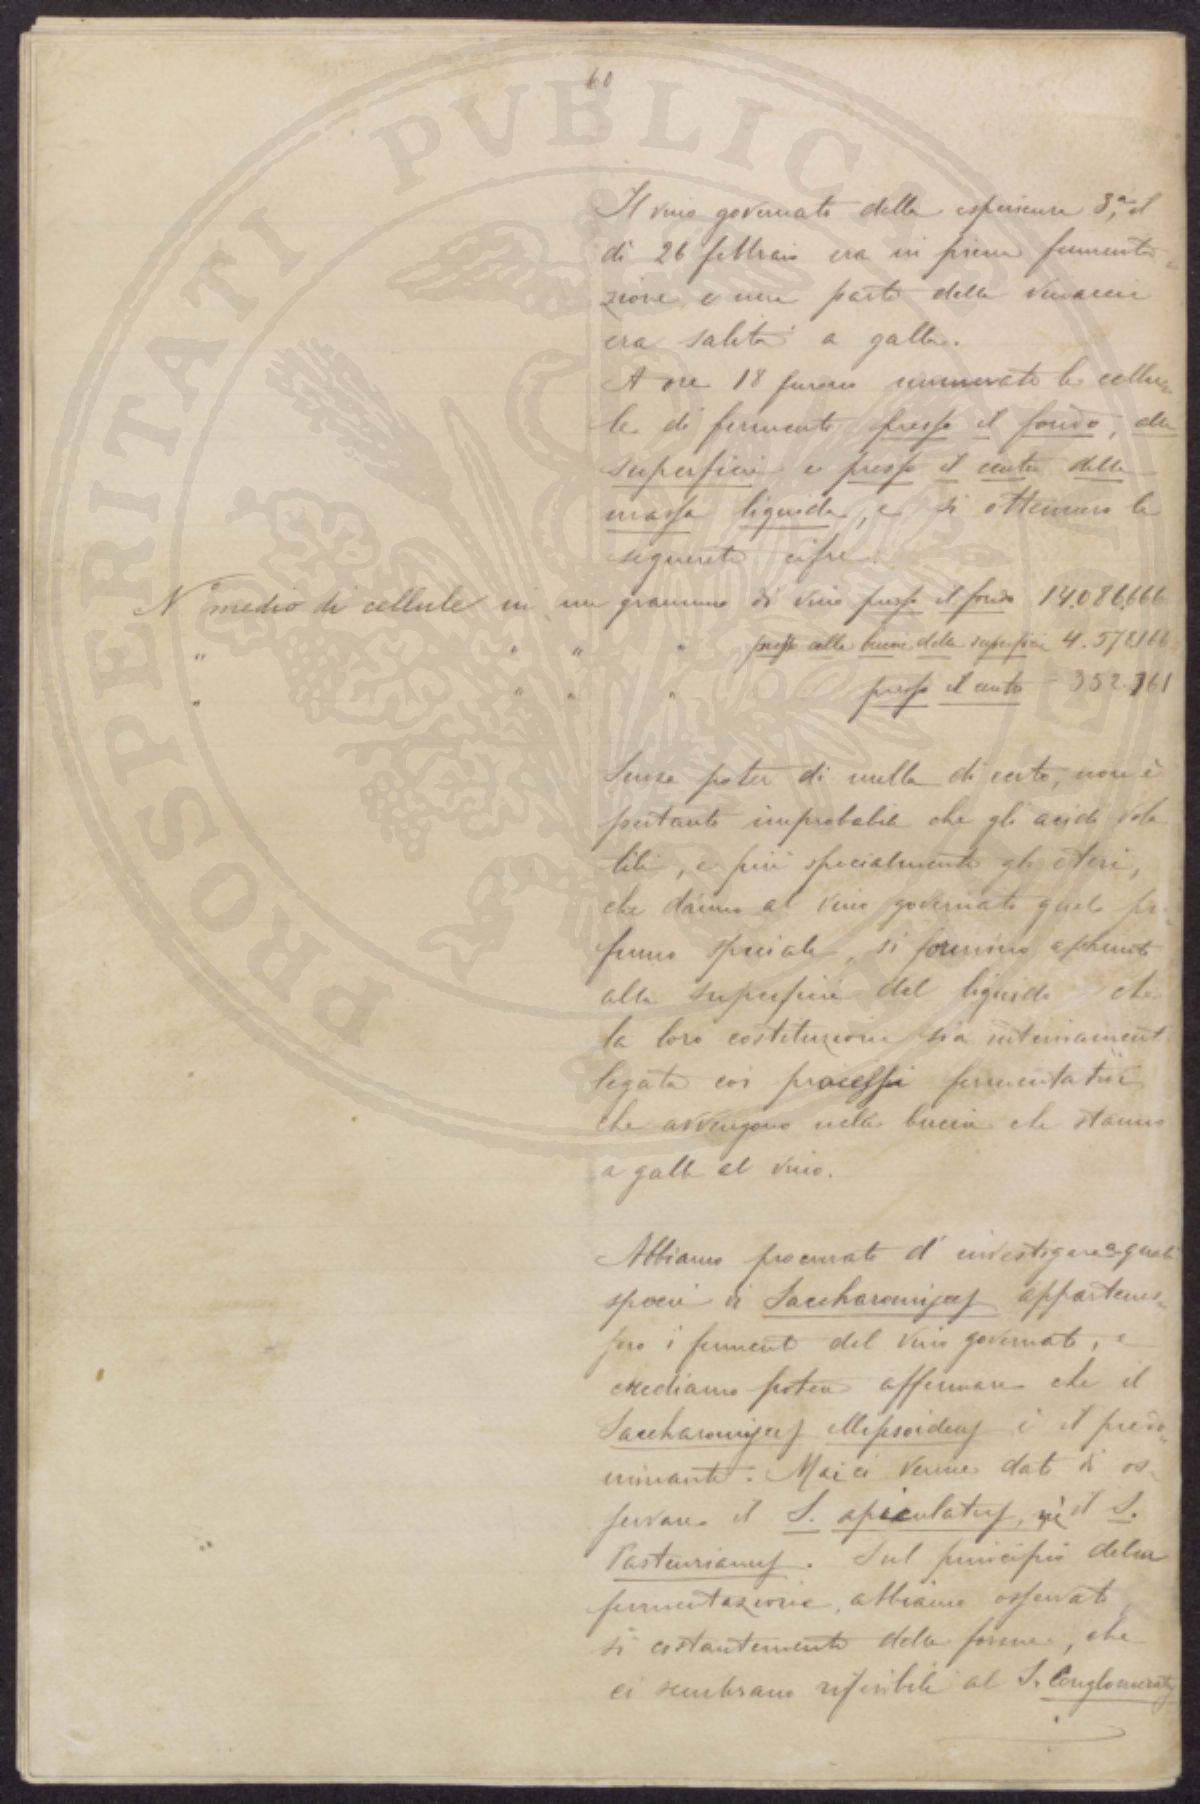 60
Il vino governato della esperienza 3ª, il
dì 26 febbraio era in piena fermenta-
zione, e una parte della vinaccia
era salita a galla.
A ore 18 furono numerate le cellu-
le di fermento presso il fondo, alla
superficie e presso il centro della
massa liquida, e si ottennero le
seguenti cifre.
N° medio di cellule in un grammo di vino presso il fondo 14.086,666
" " " " presso alle buccie della superficie 4.578,166
" " " " presso il centro 352.361
Senza poter di nulla di certo, non è
pertanto improbabile che gli acidi vola
tili, e più specialmente gli eteri,
che danno al vino governato quel pro-
fumo speciale, si formino appunto
alla superficie del liquido che
la loro costituzione sia intimamente
legata coi processi fermentativi
che avvengono nelle buccie che stanno
a galla al vino.
Abbiamo procurato d'investigare a quali
specie di Saccharomyces appartenes-
sero i fermenti del vino governato, e
crediamo poter affermare che il
Saccharomyces ellipsoideus è il predo-
minante. Mai ci venne dato di os-
servare il S. apiculatus, nè il S.
Pasteurianus. Sul principio della
fermentazione, abbiamo osservato
sì costantemente delle forme, che
ci sembrano riferibili al S. Conglomeratus
PROSPERITATI PVBLICAE